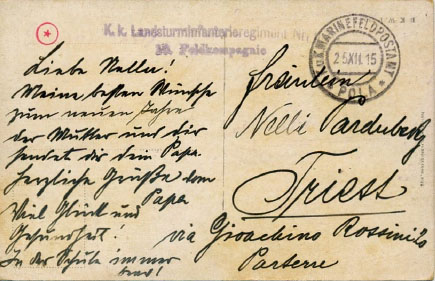 K. k. Landsturminfanterieregiment No
10. Feldkompagnie
K.u.K. MARINEFELDPOSTAMT
25 XII. 15
POLA
Liebe Nelly!
Meine besten Wünsche
zum neuen Jahre
der Mutter und dir
sendet dir dein Papa.
Herzliche Grüße vom
Papa
Viel Glück und
Gesundheit!
In der Schule immer
brav!
Fräulein
Nelli
Triest
via Gioachino Rossini
Parterre